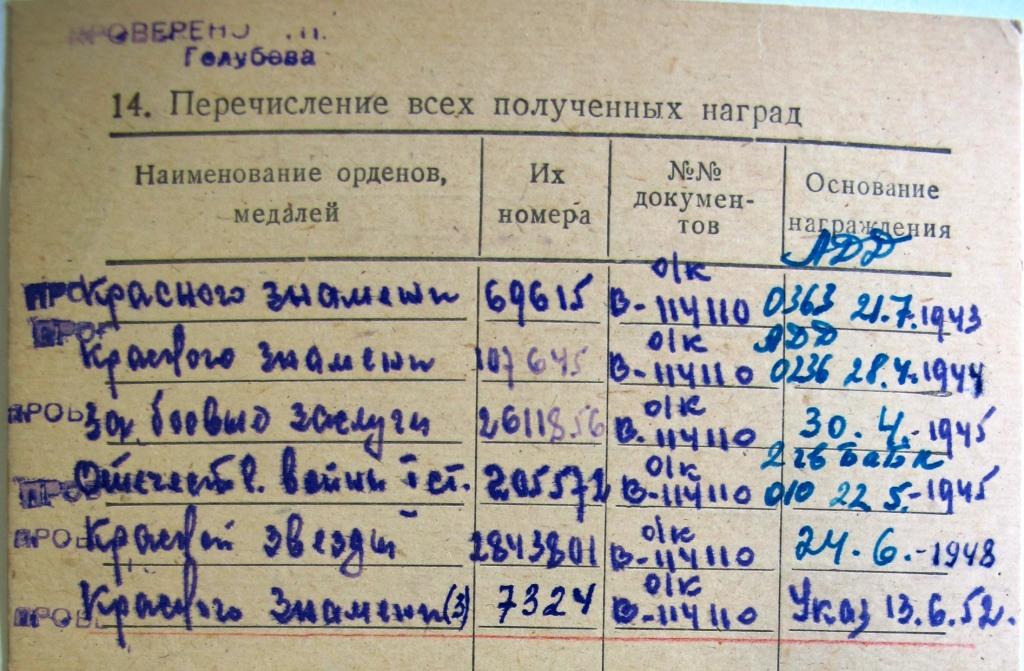 ПРОВЕРЕНО
Голубова
14. Перечисление всех полученных наград
Наименование орденов, медалей
Их номера
№№ документов
Основание награждения
Красного знамени 69615 о/к В-114110 АДД 0363 21.7.1943
Красного знамени 107645 о/к В-114110 АДД 0236 28.4.1944
За боевые заслуги 2611856 о/к В-114110 30.4.-1945
Отечеств. войны I ст. 205572 о/к В-114110 2 гв бабк 010 22.5.-1945
Красной звезды 2843801 о/к В-114110 24.6.-1948
Красного знамени (3) 7324 о/к В-114110 Указ 13.6.52.